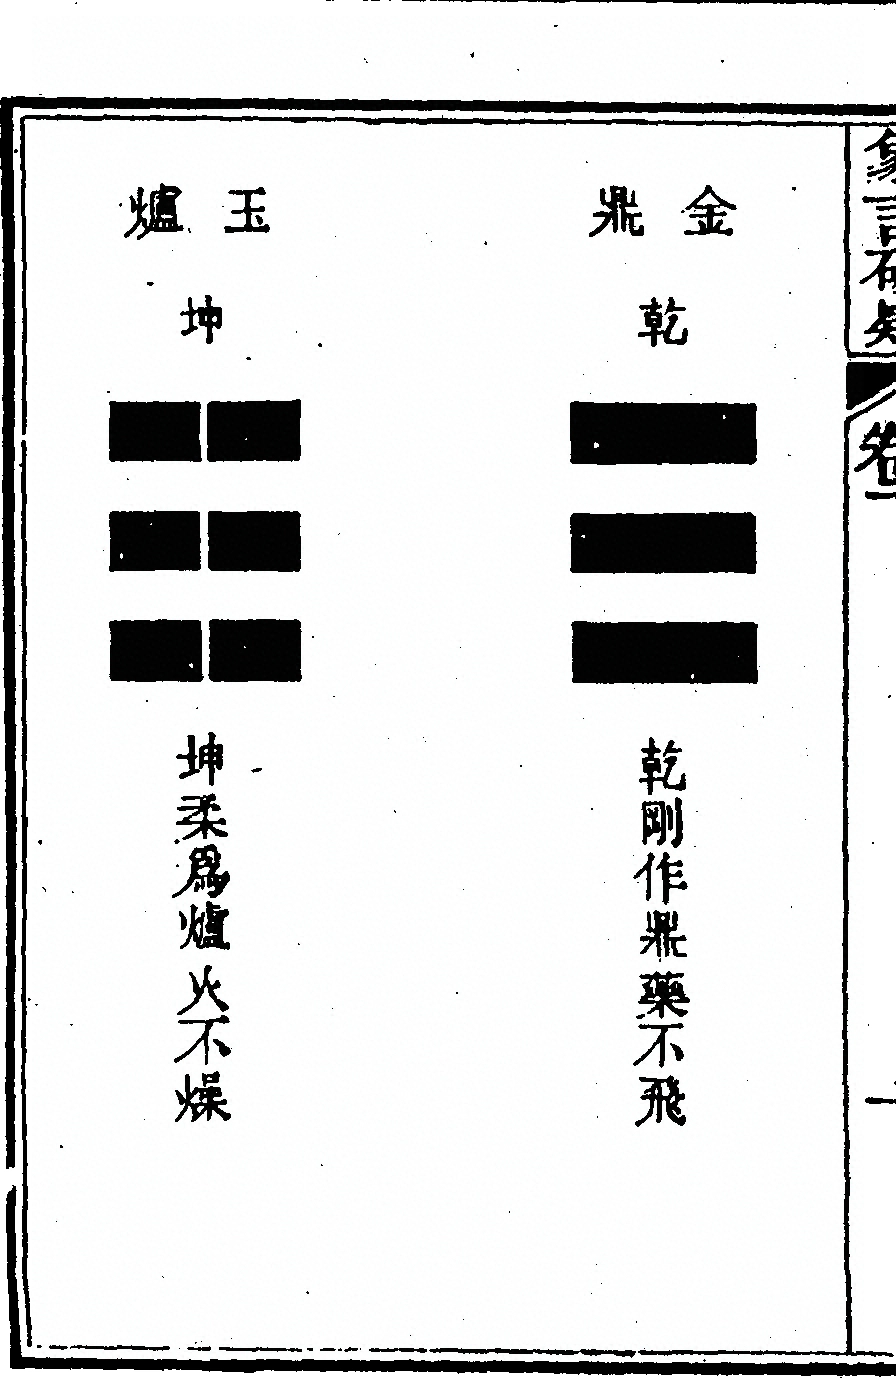 象言破疑
卷
一
金鼎
乾
乾剛作鼎藥不飛
玉爐
坤
坤柔爲爐火不燥